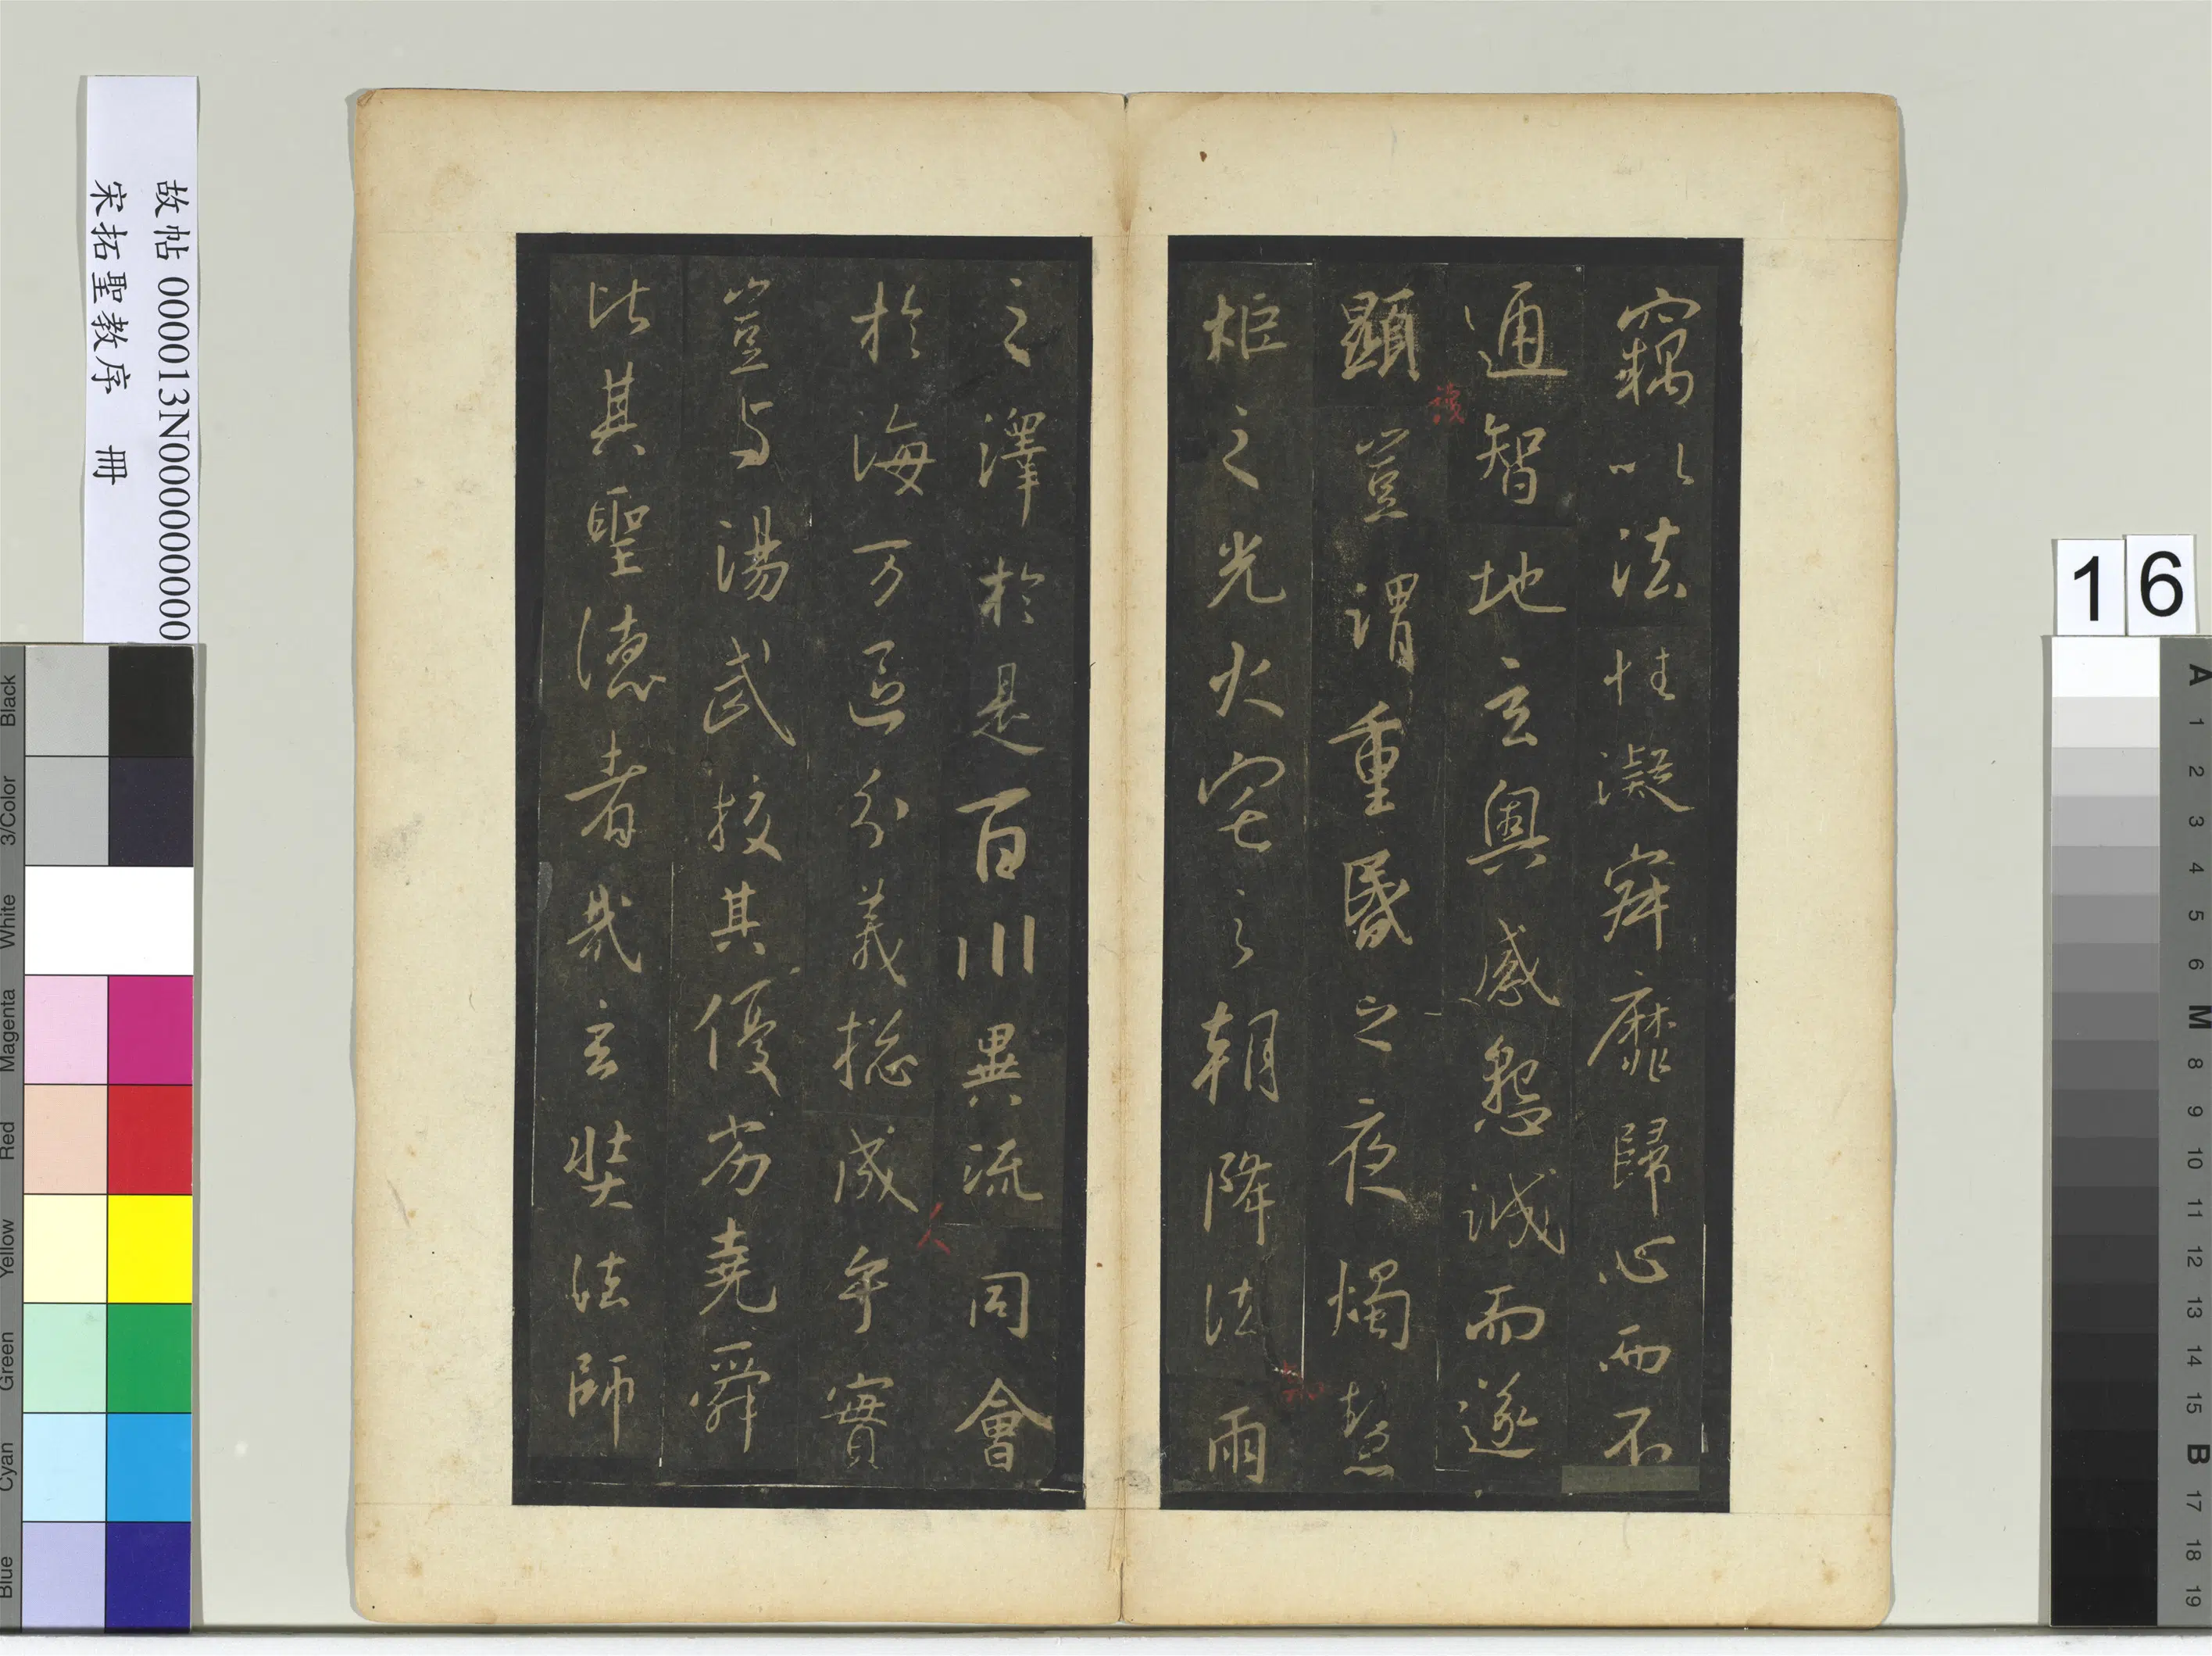 竊以法性凝寂靡歸心而不
通智地玄奧感懇誠而遂
顯豈謂重昏之夜燭慧
炬之光火宅之朝降法雨
之澤於是百川異流同會
於海万區分義揔成乎實
豈与湯武挍其優劣堯舜
比其聖德者哉玄奘法師
人
故帖 000013N000000000
宋拓聖教序 冊
16
Black
3/Color
White
Magenta
Red
Yellow
Green
Cyan
Blue
A
1
2
3
4
5
6
M
8
9
10
11
12
13
14
15
B
17
18
19